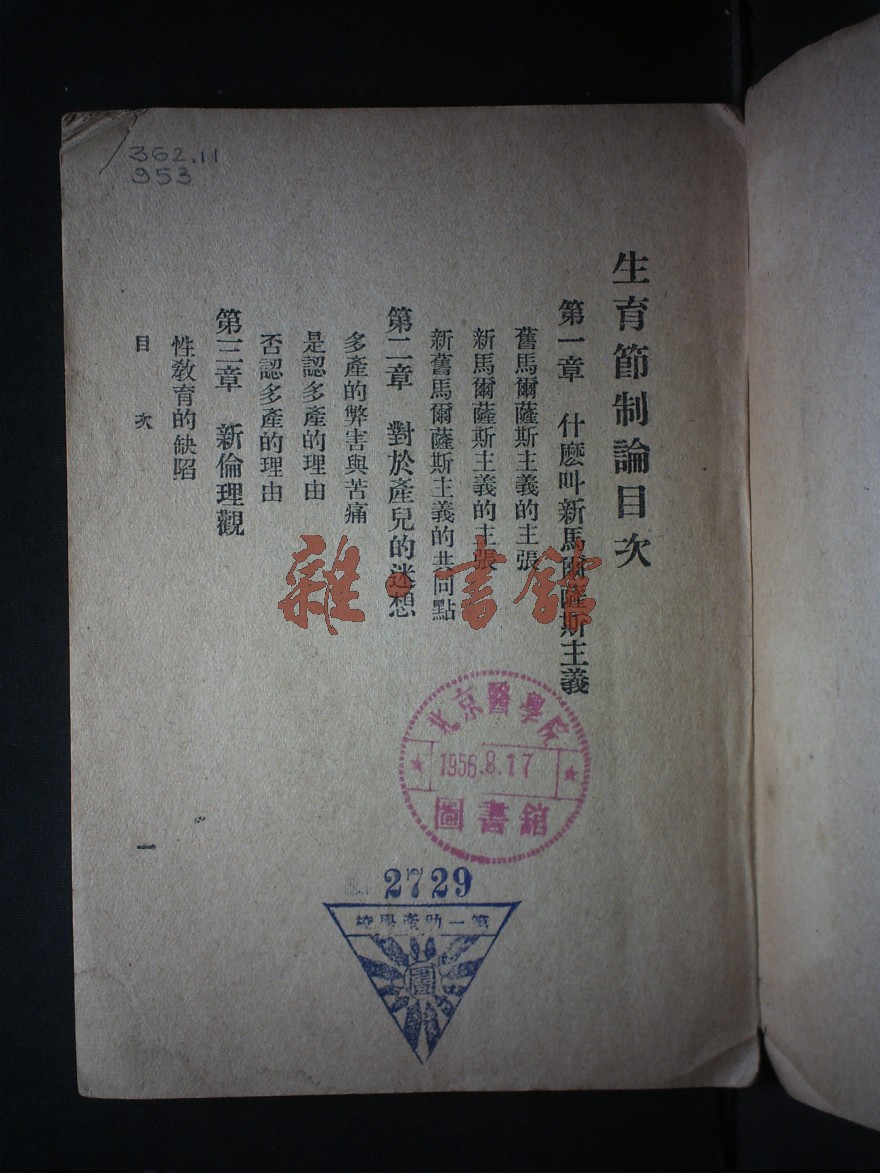 362.11
953
生育節制論目次
第一章　什麽叫新馬爾薩斯主義
舊馬爾薩斯主義的主張
新馬爾薩斯主義的主張
新舊馬爾薩斯主義的共同點
第二章　對於產兒的迷想
多產的弊害與苦痛
是認多產的理由
否認多產的理由
第三章　新倫理觀
性教育的缺陷
目次
一
雜·書館
北京醫學院
1956.8.17
圖書館
2729
第一助產學校
圖